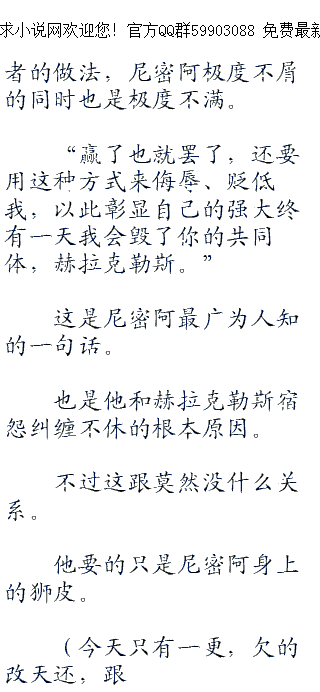 求小说网欢迎您！官方QQ群59903088 免费最新
者的做法，尼密阿极度不屑
的同时也是极度不满。
“赢了也就罢了，还要
用这种方式来侮辱、贬低
我，以此彰显自己的强大终
有一天我会毁了你的共同
体，赫拉克勒斯。”
这是尼密阿最广为人知
的一句话。
也是他和赫拉克勒斯宿
怨纠缠不休的根本原因。
不过这跟莫然没什么关
系。
他要的只是尼密阿身上
的狮皮。
（今天只有一更，欠的
改天还，跟